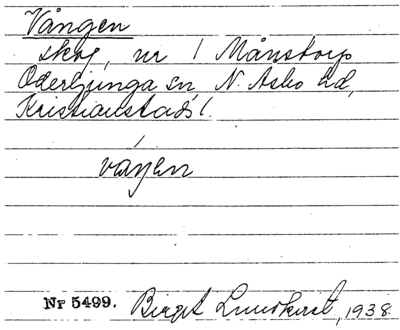 Vången
skog, nr 1 Månstorp
Oderljunga sn, N. Åsbo hd,
Kristianstads l.
váŋen
Nr 5499. Birgit Lundkvist, 1938.